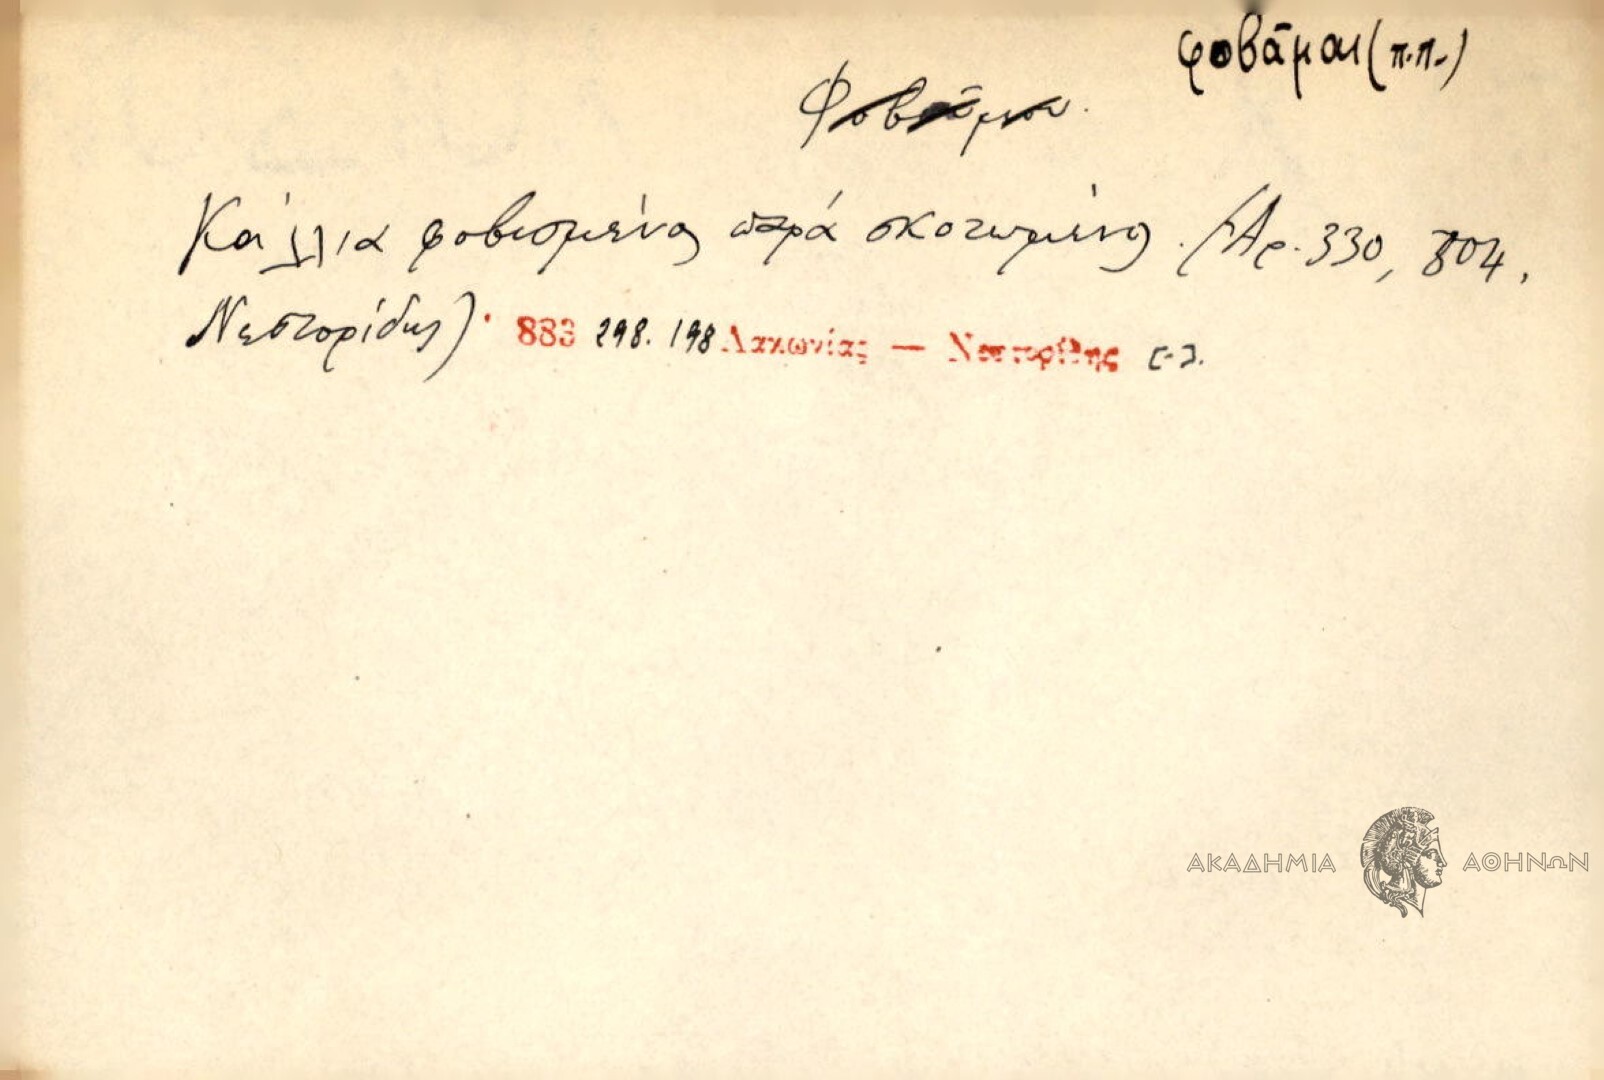 φοβᾶμαι (π.π.)
Φοβᾶμαι.
Κάλλια φοβισμένος παρά σκοτωμένος. (Ἀρ. 330, 804,
Νεστορίδης). 883 298. 198 Λακωνίας — Νεστορίδης
ΑΚΑΔΗΜΙΑ ΑΘΗΝΩΝ